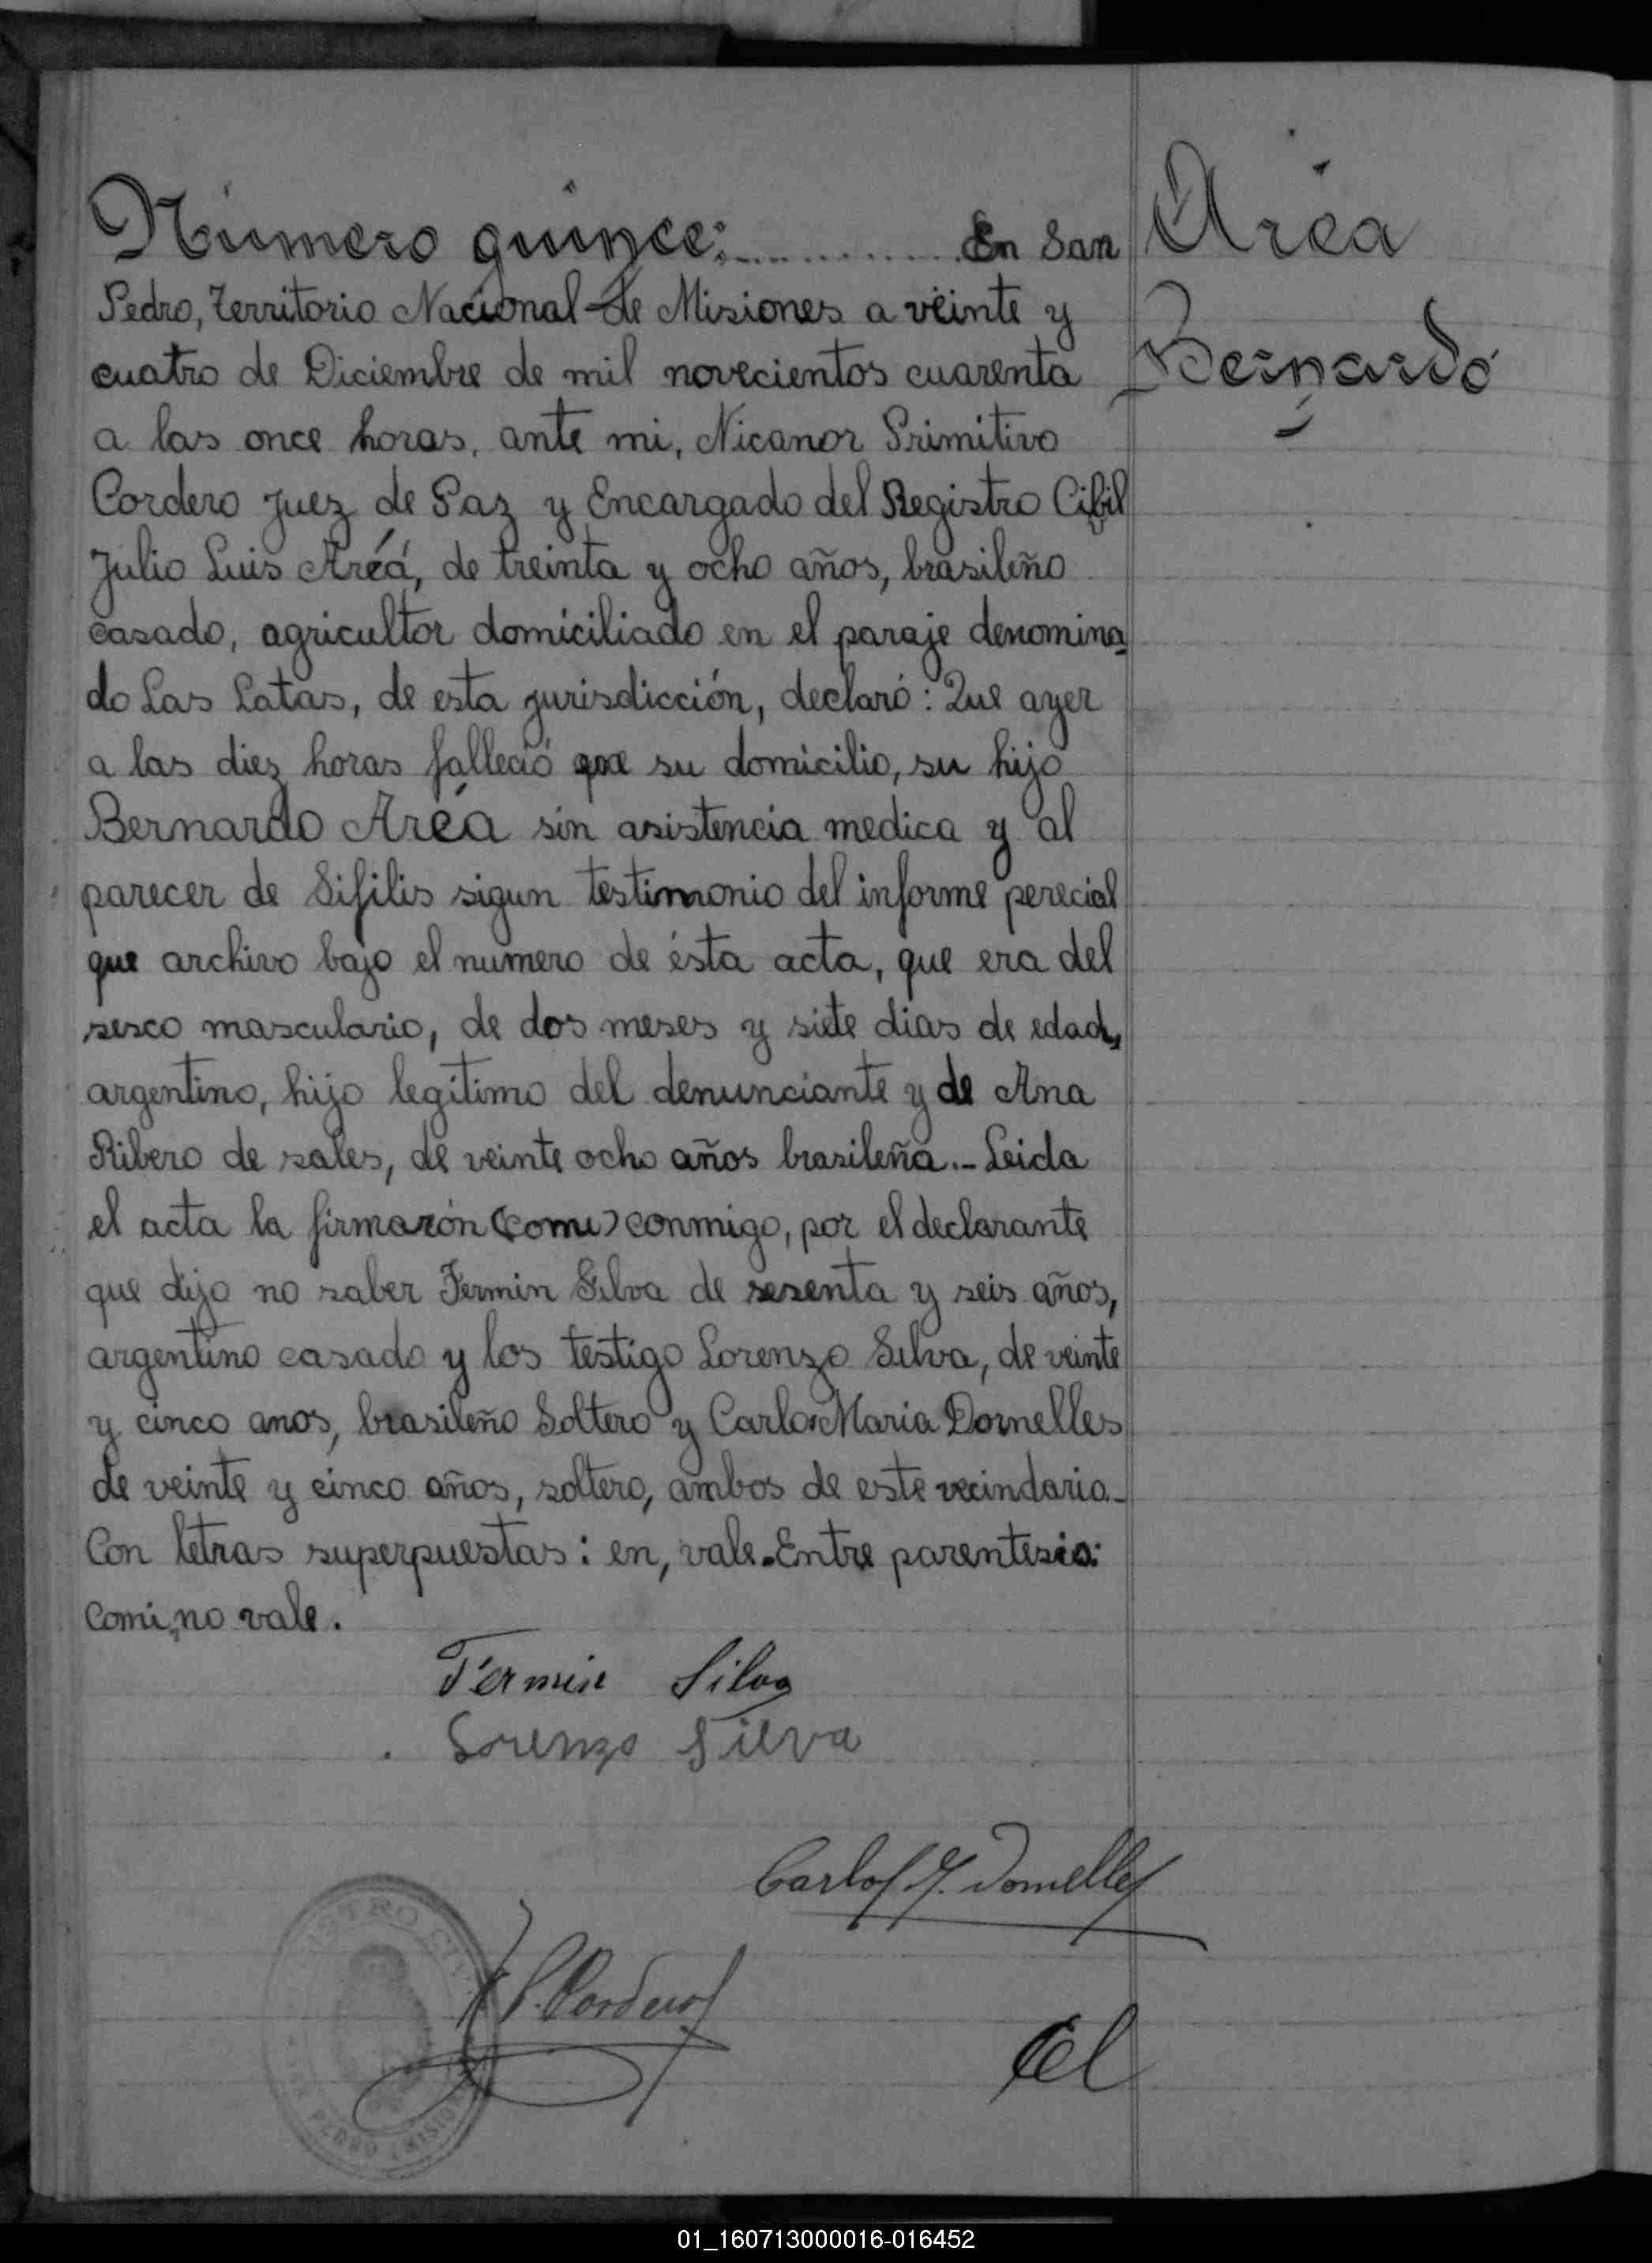 Número quince:............En San
Pedro, Territorio Nacional de Misiones a veinte y
cuatro de Diciembre de mil novecientos cuarenta
a las once horas, ante mi, Nicanor Primitivo
Cordero Juez de Paz y Encargado del Registro Cibil
Julio Luis Aréá, de treinta y ocho años, brasileño
casado, agricultor domiciliado en el paraje denomina
do Las Latas, de esta jurisdicción, declaró: Que ayer
a las diez horas falleció su domicilio, su hijo
Bernardo Aréa sin asistencia medica y al
parecer de Sifilis sigun testimonio del informe perecial
que archivo bajo el numero de ésta acta, que era del
sesco masculario, de dos meses y siete dias de edad,
argentino, hijo legitimo del denunciante y de Ana
Ribero de sales, de veinte ocho años brasileña.- Leida
el acta la firmarón (comi) conmigo, por el declarante
que dijo no saber Fermin Silva de sesenta y seis años,
argentino casado y los testigo Lorenzo Silva, de veinte
y cinco anos, brasileño Soltero y Carlos Maria Dornelles
de veinte y cinco años, soltero, ambos de este vecindario.-
Con letras superpuestas: en, vale. Entre parentesis:
comi, no vale.
Area
Bernardo
Fermin Silva
Lorenzo Silva
Carlos M. Dornelles
N P. Cordero
ISTRO CI
PEDRO (MISION
01_160713000016-016452